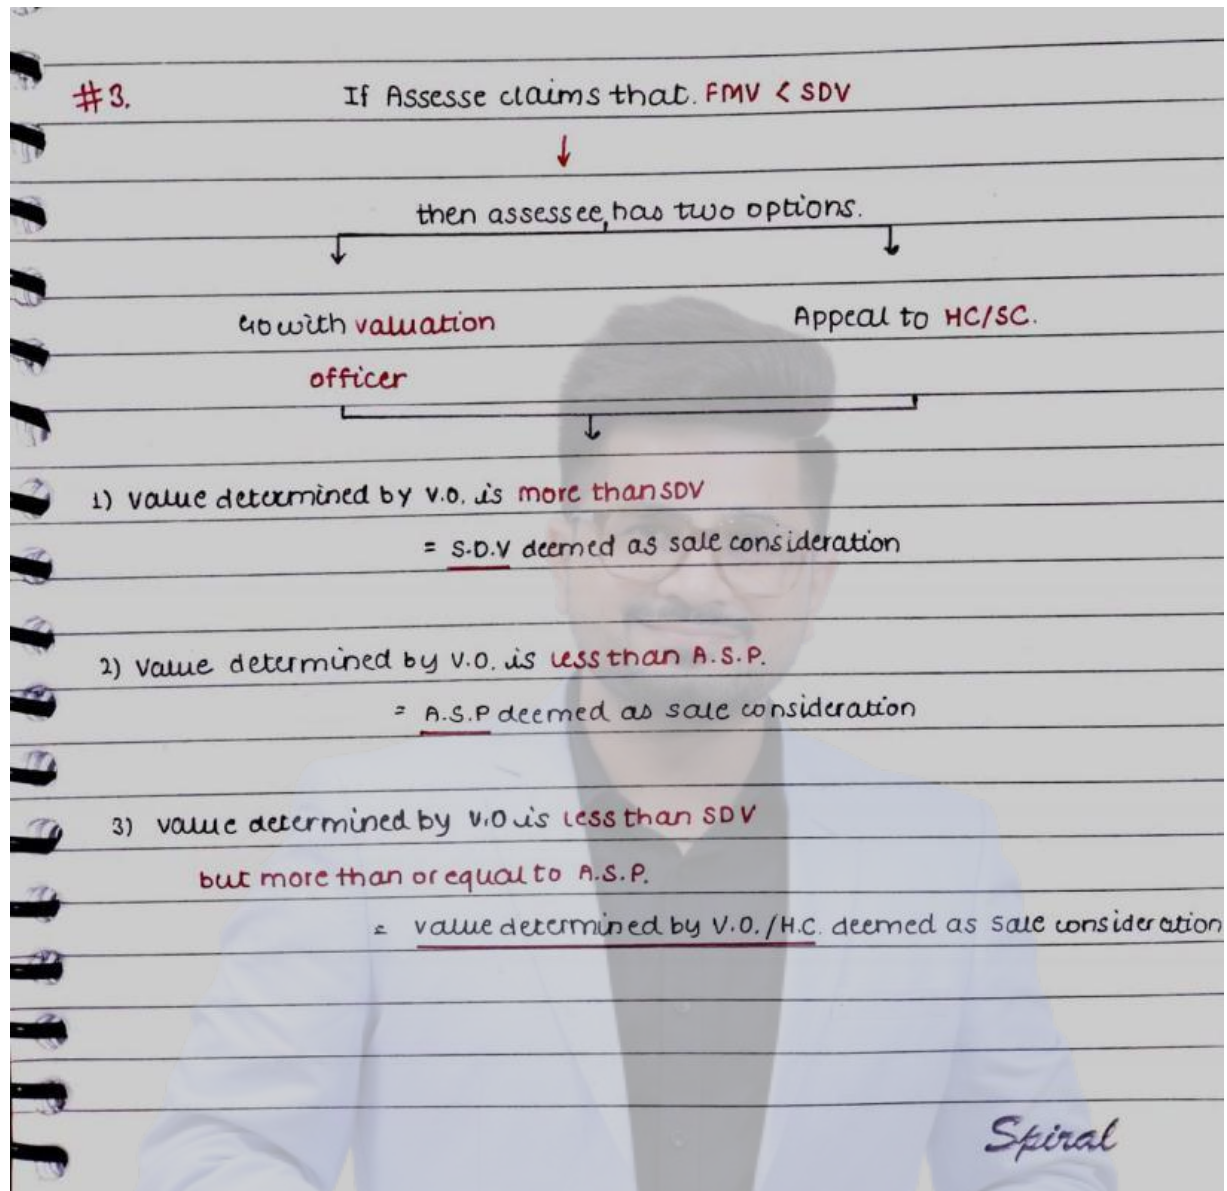 #3. If Assesse claims that. FMV < SDV
then assessee, has two options.
Go with valuation Appeal to HC/SC.
officer
1) Value determined by V.O. is more than SDV
= S.D.V deemed as sale consideration
2) Value determined by V.O. is less than A.S.P.
= A.S.P deemed as sale consideration
3) Value determined by V.O is less than SDV
but more than or equal to A.S.P.
= value determined by V.O./H.C. deemed as sale consideration
Spiral